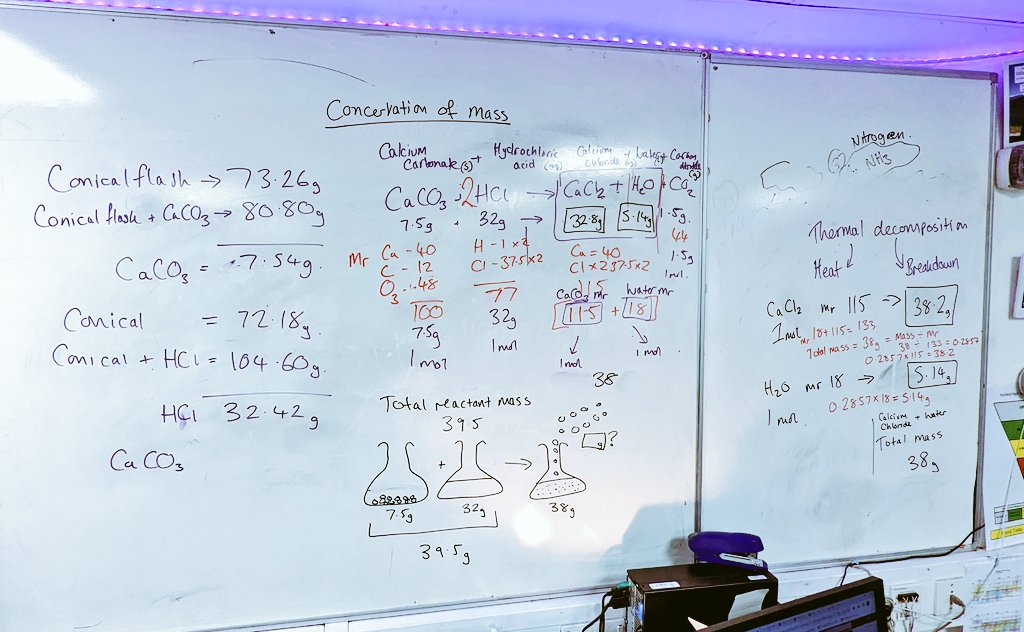 Concervation of mass
Conical flask → 73.26g
Conical flask + CaCO3 → 80.80g
CaCO3 = 7.54g.
Conical = 72.18g
Conical + HCl = 104.60g.
HCl 32.42g
CaCO3
Calcium Carbonate (s) + Hydrochloric acid (aq) Calcium chloride (aq) + Water + Carbon dioxide (g)
CaCO3 + 2HCl → CaCl2 + H2O + CO2
7.5g + 32g → 32.8g 5.14g 1.5g.
Mr Ca - 40 H - 1 x 2 Ca = 40 44
C - 12 Cl - 37.5 x 2 Cl x 2 37.5 x 2 1.5g
O3 - 48 115 1mol.
100 77 CaCO2 mr Water mr
7.5g 32g 115 + 18
1mol 1mol 1mol 1mol.
38
Total reactant mass
39.5
+ → g?
7.5g 32g 38g
39.5g
Nitrogen.
NH3
Thermal decomposition
Heat Breakdown
CaCl2 mr 115 → 38.2g
1mol mr 18+115 = 133
Total mass = 38g = Mass ÷ mr
38 ÷ 133 = 0.2857
0.2857 x 115 = 38.2
H2O mr 18 → 5.14g
1mol 0.2857 x 18 = 5.14g
Calcium Chloride + Water
Total mass
38g